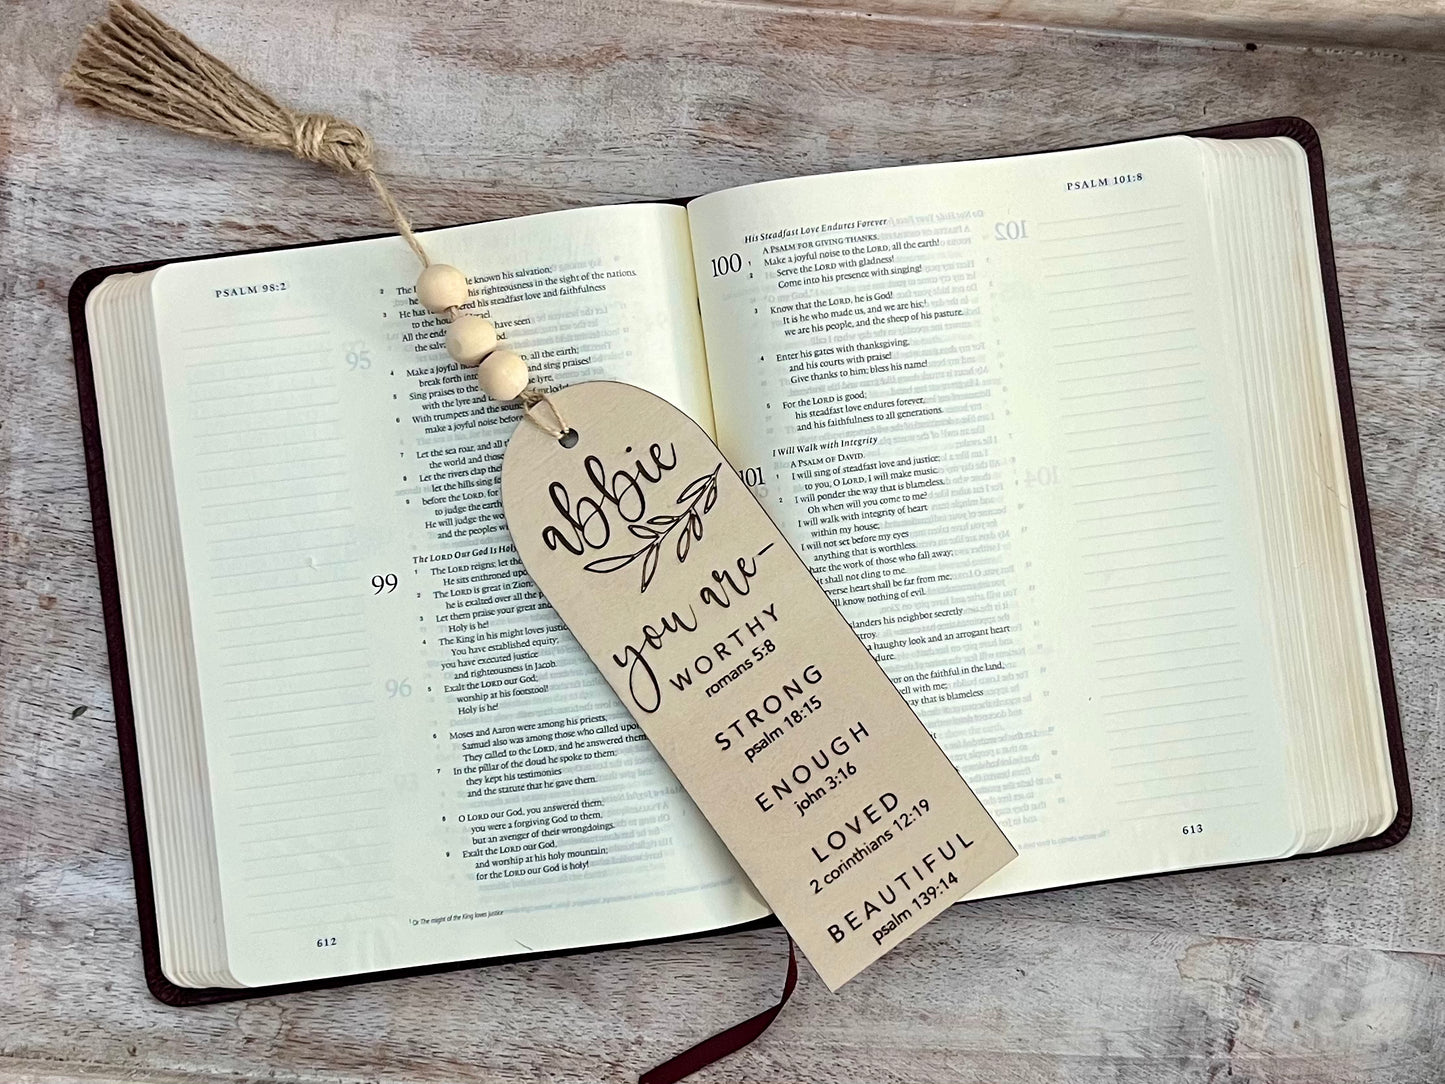 PSALM 98:2
2 The L known his salvation;
he his righteousness in the sight of the nations.
3 He has ered his steadfast love and faithfulness
to the hou of Israel.
All the ends have seen
the salv God.
4 Make a joyful , all the earth;
break forth into and sing praises!
5 Sing praises to the the lyre,
with the lyre and the
6 With trumpets and the sound
make a joyful noise before
7 Let the sea roar, and all
the world and those
8 Let the rivers clap their
let the hills sing for
9 before the LORD, for
to judge the earth
He will judge the wo
and the peoples w
The LORD Our God Is Holy
99 1 The LORD reigns; let the
He sits enthroned upo
2 The LORD is great in Zion;
he is exalted over all the p
3 Let them praise your great and
Holy is he!
4 The King in his might loves justice
You have established equity;
you have executed justice
and righteousness in Jacob.
5 Exalt the LORD our God;
worship at his footstool!
Holy is he!
6 Moses and Aaron were among his priests,
Samuel also was among those who called upon
They called to the LORD, and he answered them
7 In the pillar of the cloud he spoke to them;
they kept his testimonies
and the statute that he gave them.
8 O LORD our God, you answered them;
you were a forgiving God to them,
but an avenger of their wrongdoings.
9 Exalt the LORD our God,
and worship at his holy mountain;
for the LORD our God is holy!
1 Or The might of the King loves justice
612
abbie
you are–
WORTHY
romans 5:8
STRONG
psalm 18:15
ENOUGH
john 3:16
LOVED
2 corinthians 12:19
BEAUTIFUL
psalm 139:14
PSALM 101:8
His Steadfast Love Endures Forever
100 A PSALM FOR GIVING THANKS.
1 Make a joyful noise to the LORD, all the earth!
2 Serve the LORD with gladness!
Come into his presence with singing!
3 Know that the LORD, he is God!
It is he who made us, and we are his;
we are his people, and the sheep of his pasture.
4 Enter his gates with thanksgiving,
and his courts with praise!
Give thanks to him; bless his name!
5 For the LORD is good;
his steadfast love endures forever,
and his faithfulness to all generations.
I Will Walk with Integrity
101 A PSALM OF DAVID.
1 I will sing of steadfast love and justice;
to you, O LORD, I will make music.
2 I will ponder the way that is blameless.
Oh when will you come to me?
I will walk with integrity of heart
within my house;
I will not set before my eyes
anything that is worthless.
hate the work of those who fall away;
it shall not cling to me.
verse heart shall be far from me;
ll know nothing of evil.
landers his neighbor secretly
troy.
a haughty look and an arrogant heart
dure.
or on the faithful in the land,
ell with me;
ay that is blameless
613